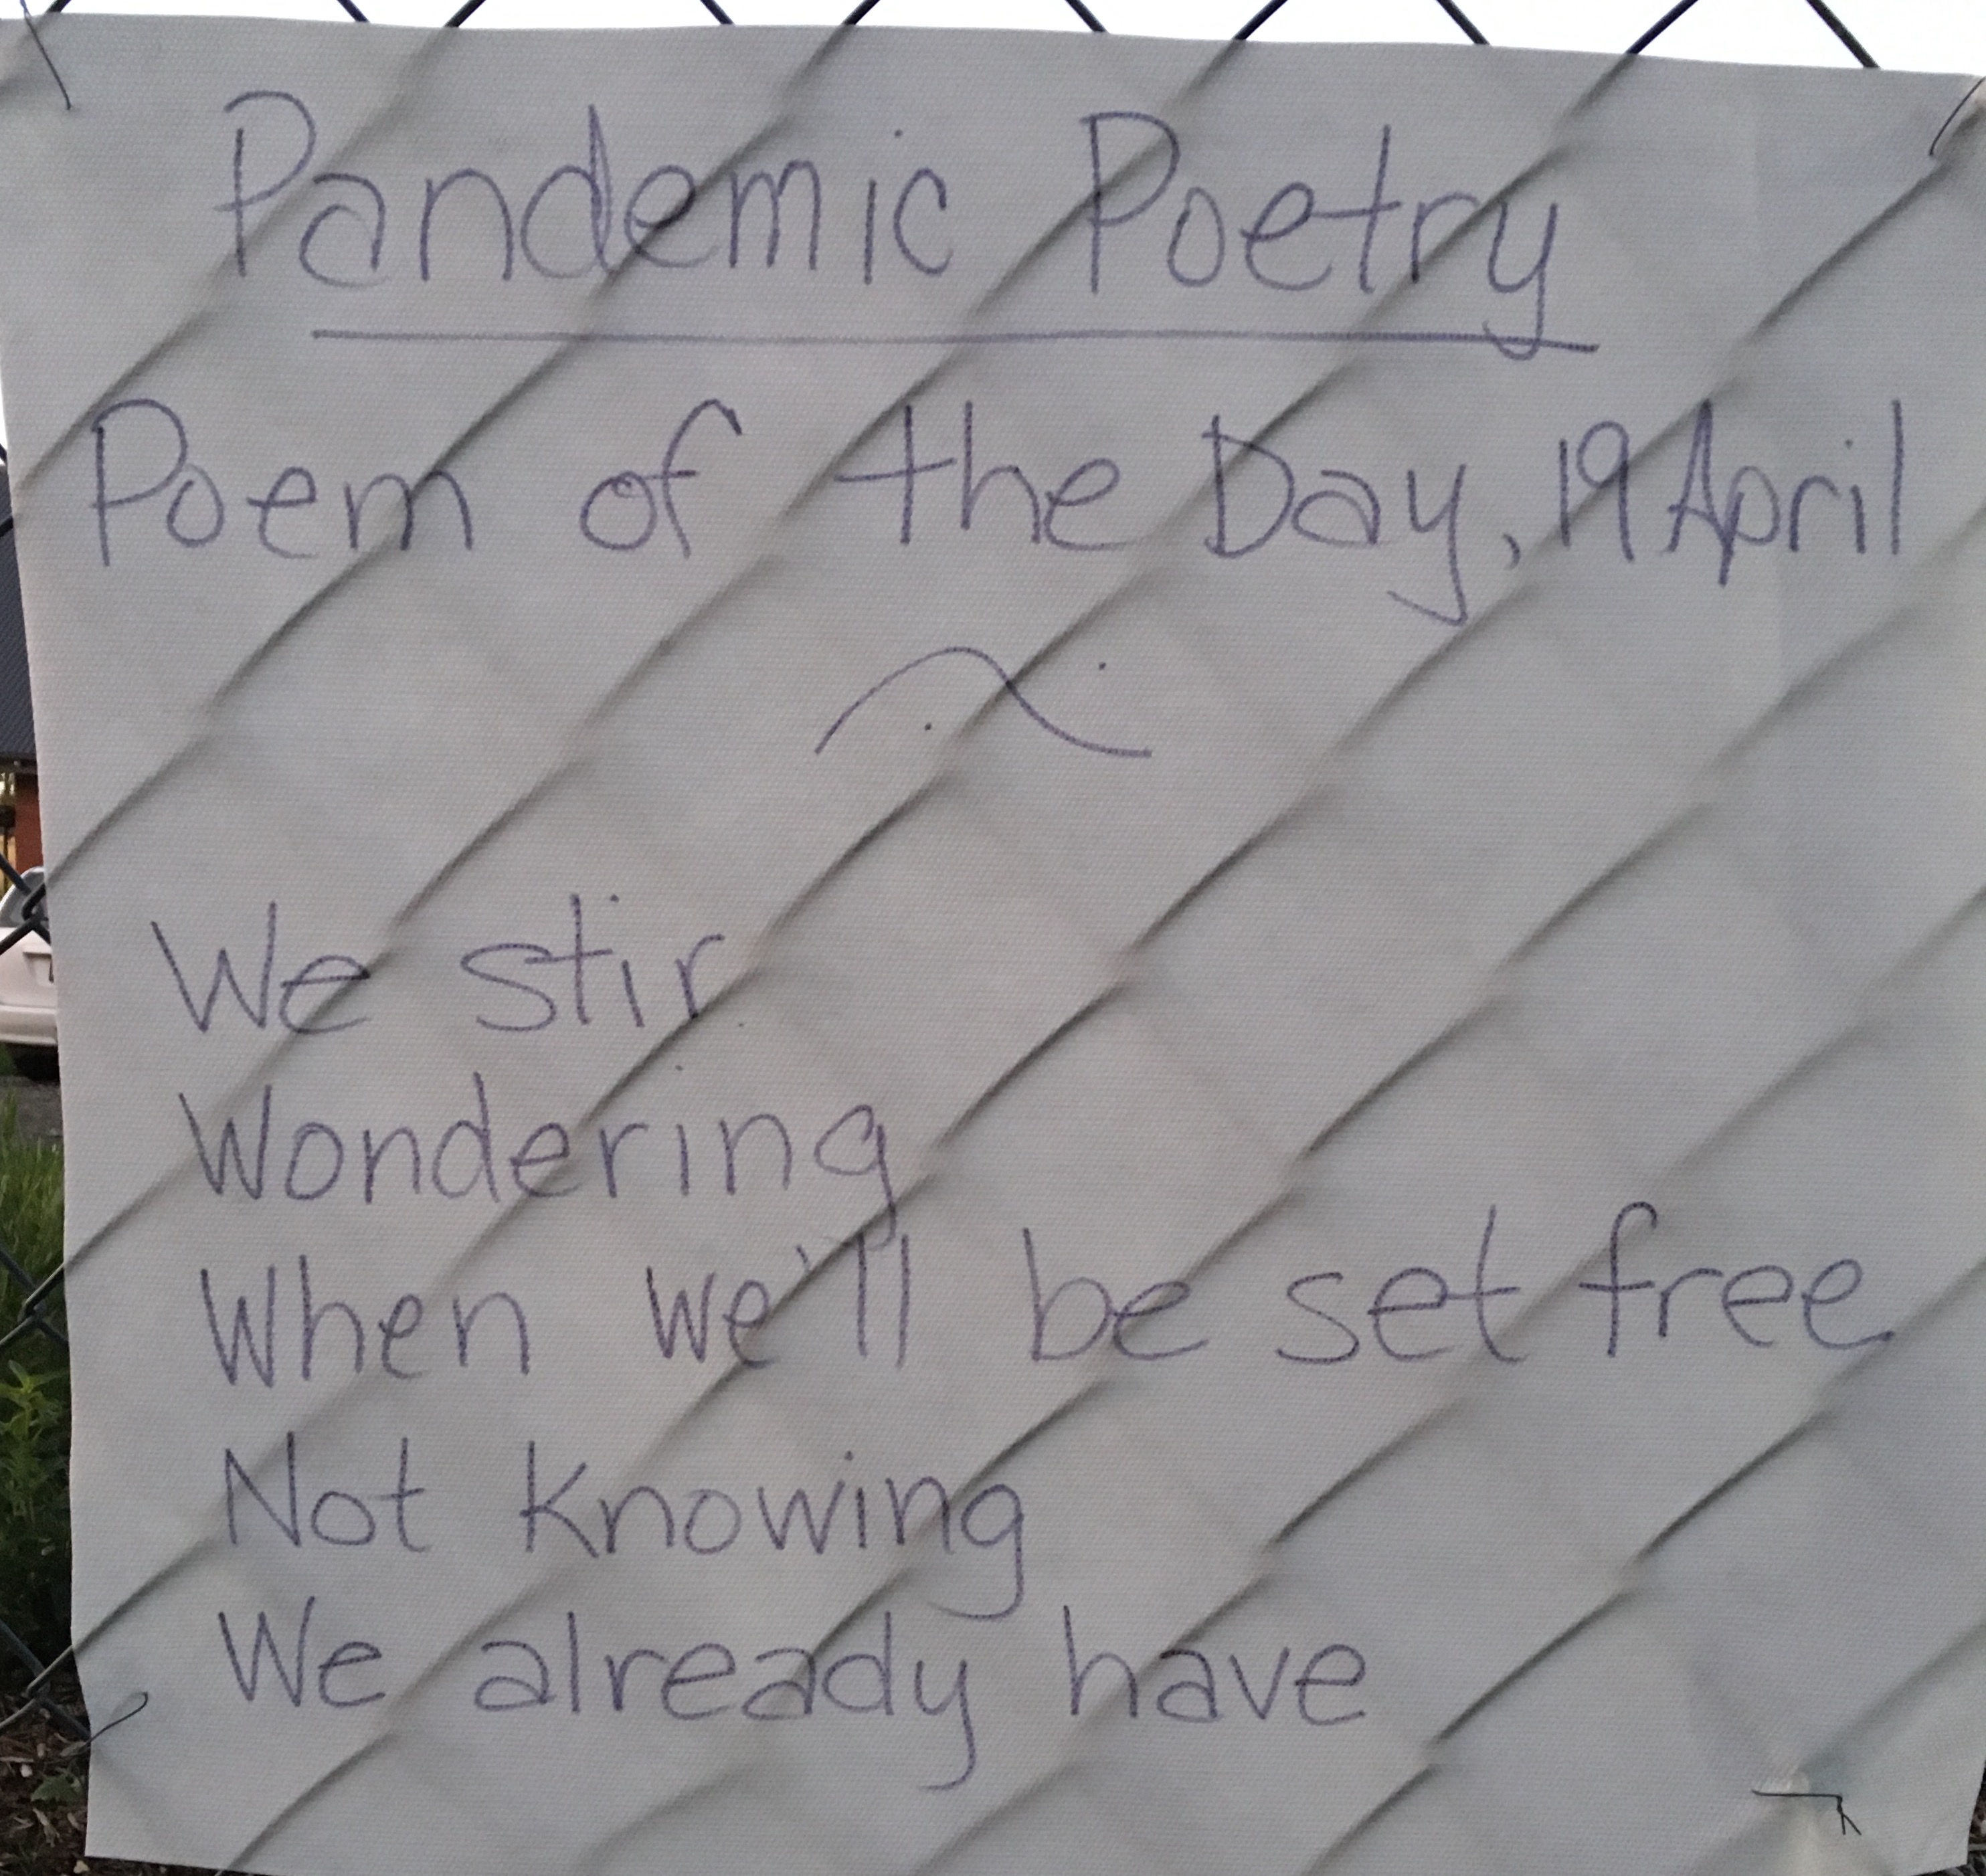 Pandemic Poetry
Poem of the Day, 19 April
We stir
Wondering
When we'll be set free
Not knowing
We already have